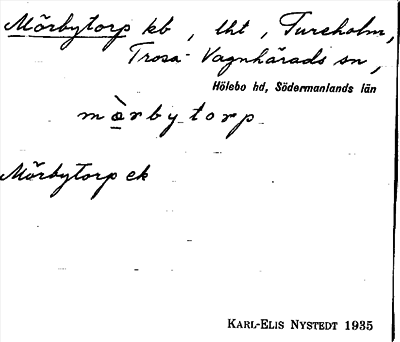 Mörbytorp kb, lht, Tureholm,
Trosa-Vagnhärads sn,
Hölebo hd, Södermanlands län
mὰrbytorp
Mörbytorp ek
KARL-ELIS NYSTEDT 1935